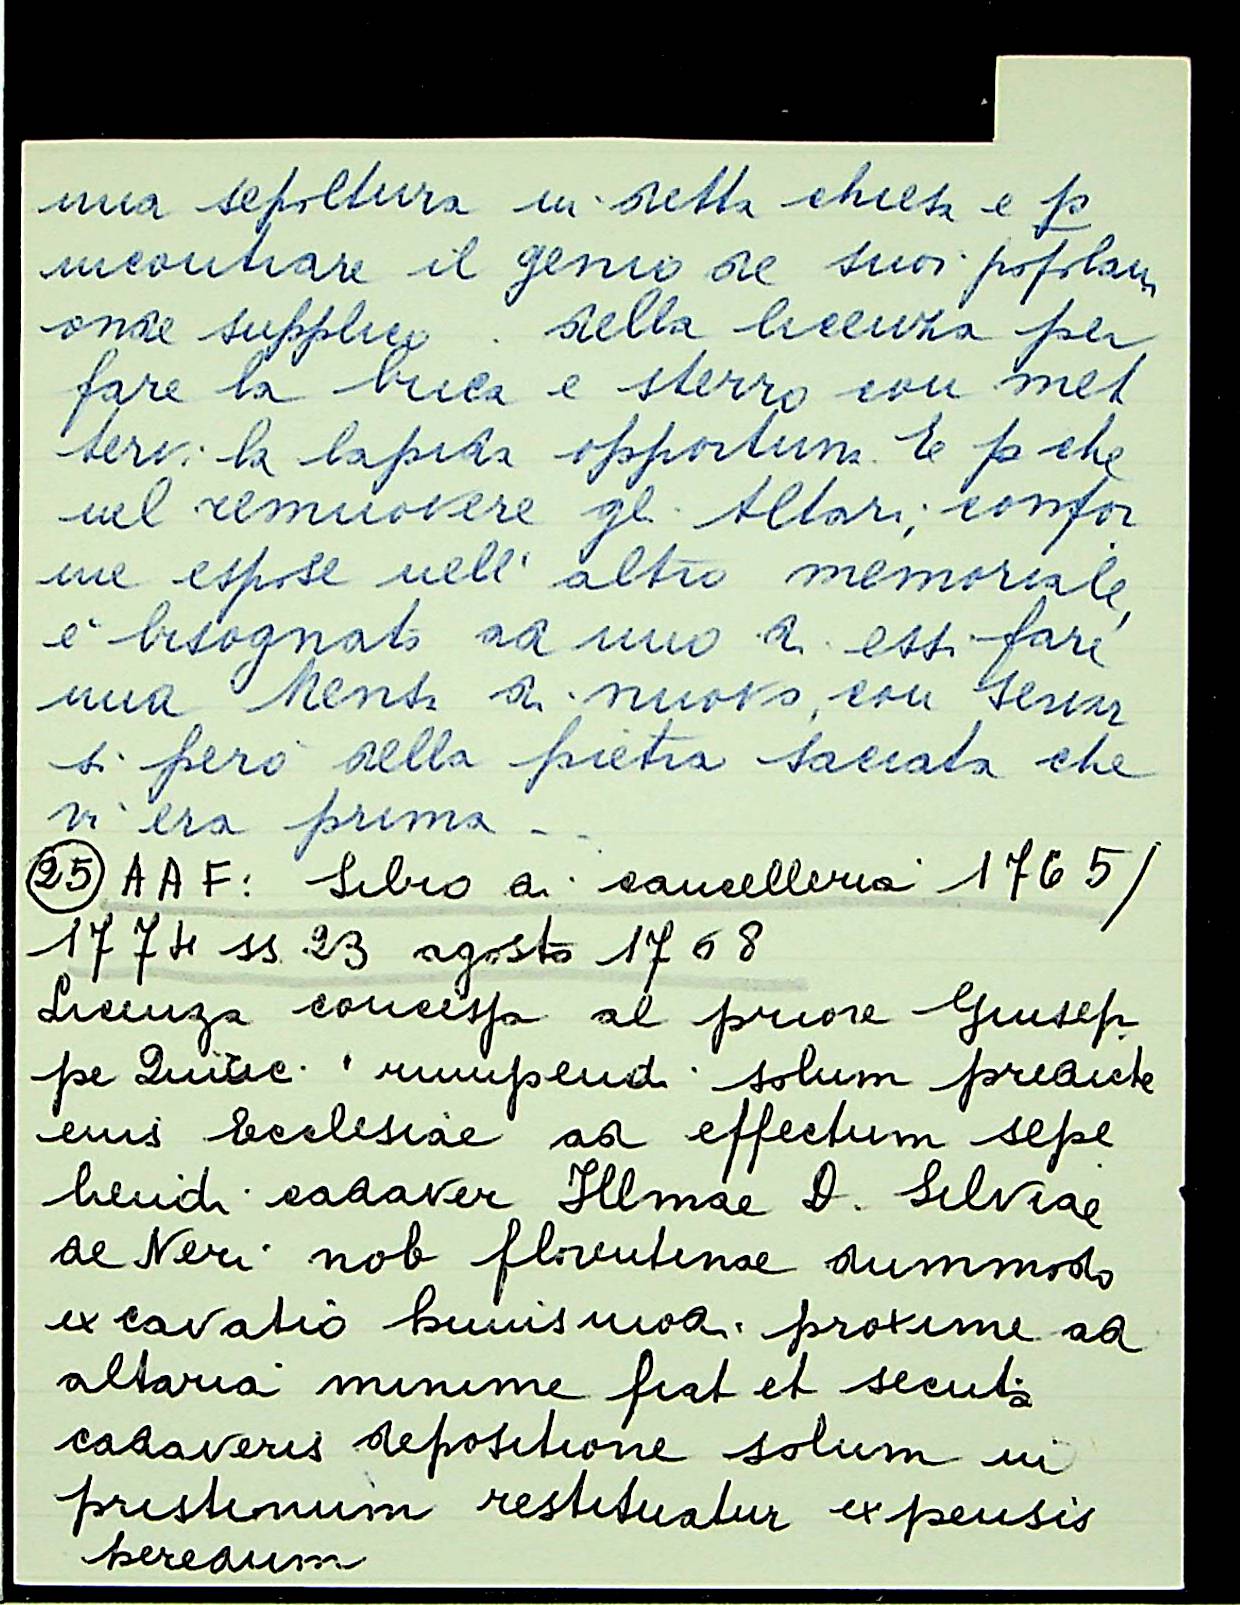 una sepoltura in detta chiesa e p
incontrare il genio de suoi popolani
onde supplico . della licenza per
fare la buca e sterro con met
tervi la lapida opportuna. E p che
nel remuovere gl. Altari, confor
me espose nell' altro memoriale,
è bisognato ad uno di essi fare
una Mensa di nuovo, con servir
si però della pietra sacrata che
vi era prima - -
25 AAF: Libro di cancelleria 1765/
1774 ss. 23 agosto 1768
Licenza concessa al priore Giusep
pe rumpendi solum predicte
eius Ecclesiae ad effectum sepe
liendi cadaver Illmae D. Silviae
de Neri nob florentinae dummodo
excavatio huiusmodi proxime ad
altaria minime fiat et secuta
cadaveris depositione solum in
pristinum restituatur expensis
heredum